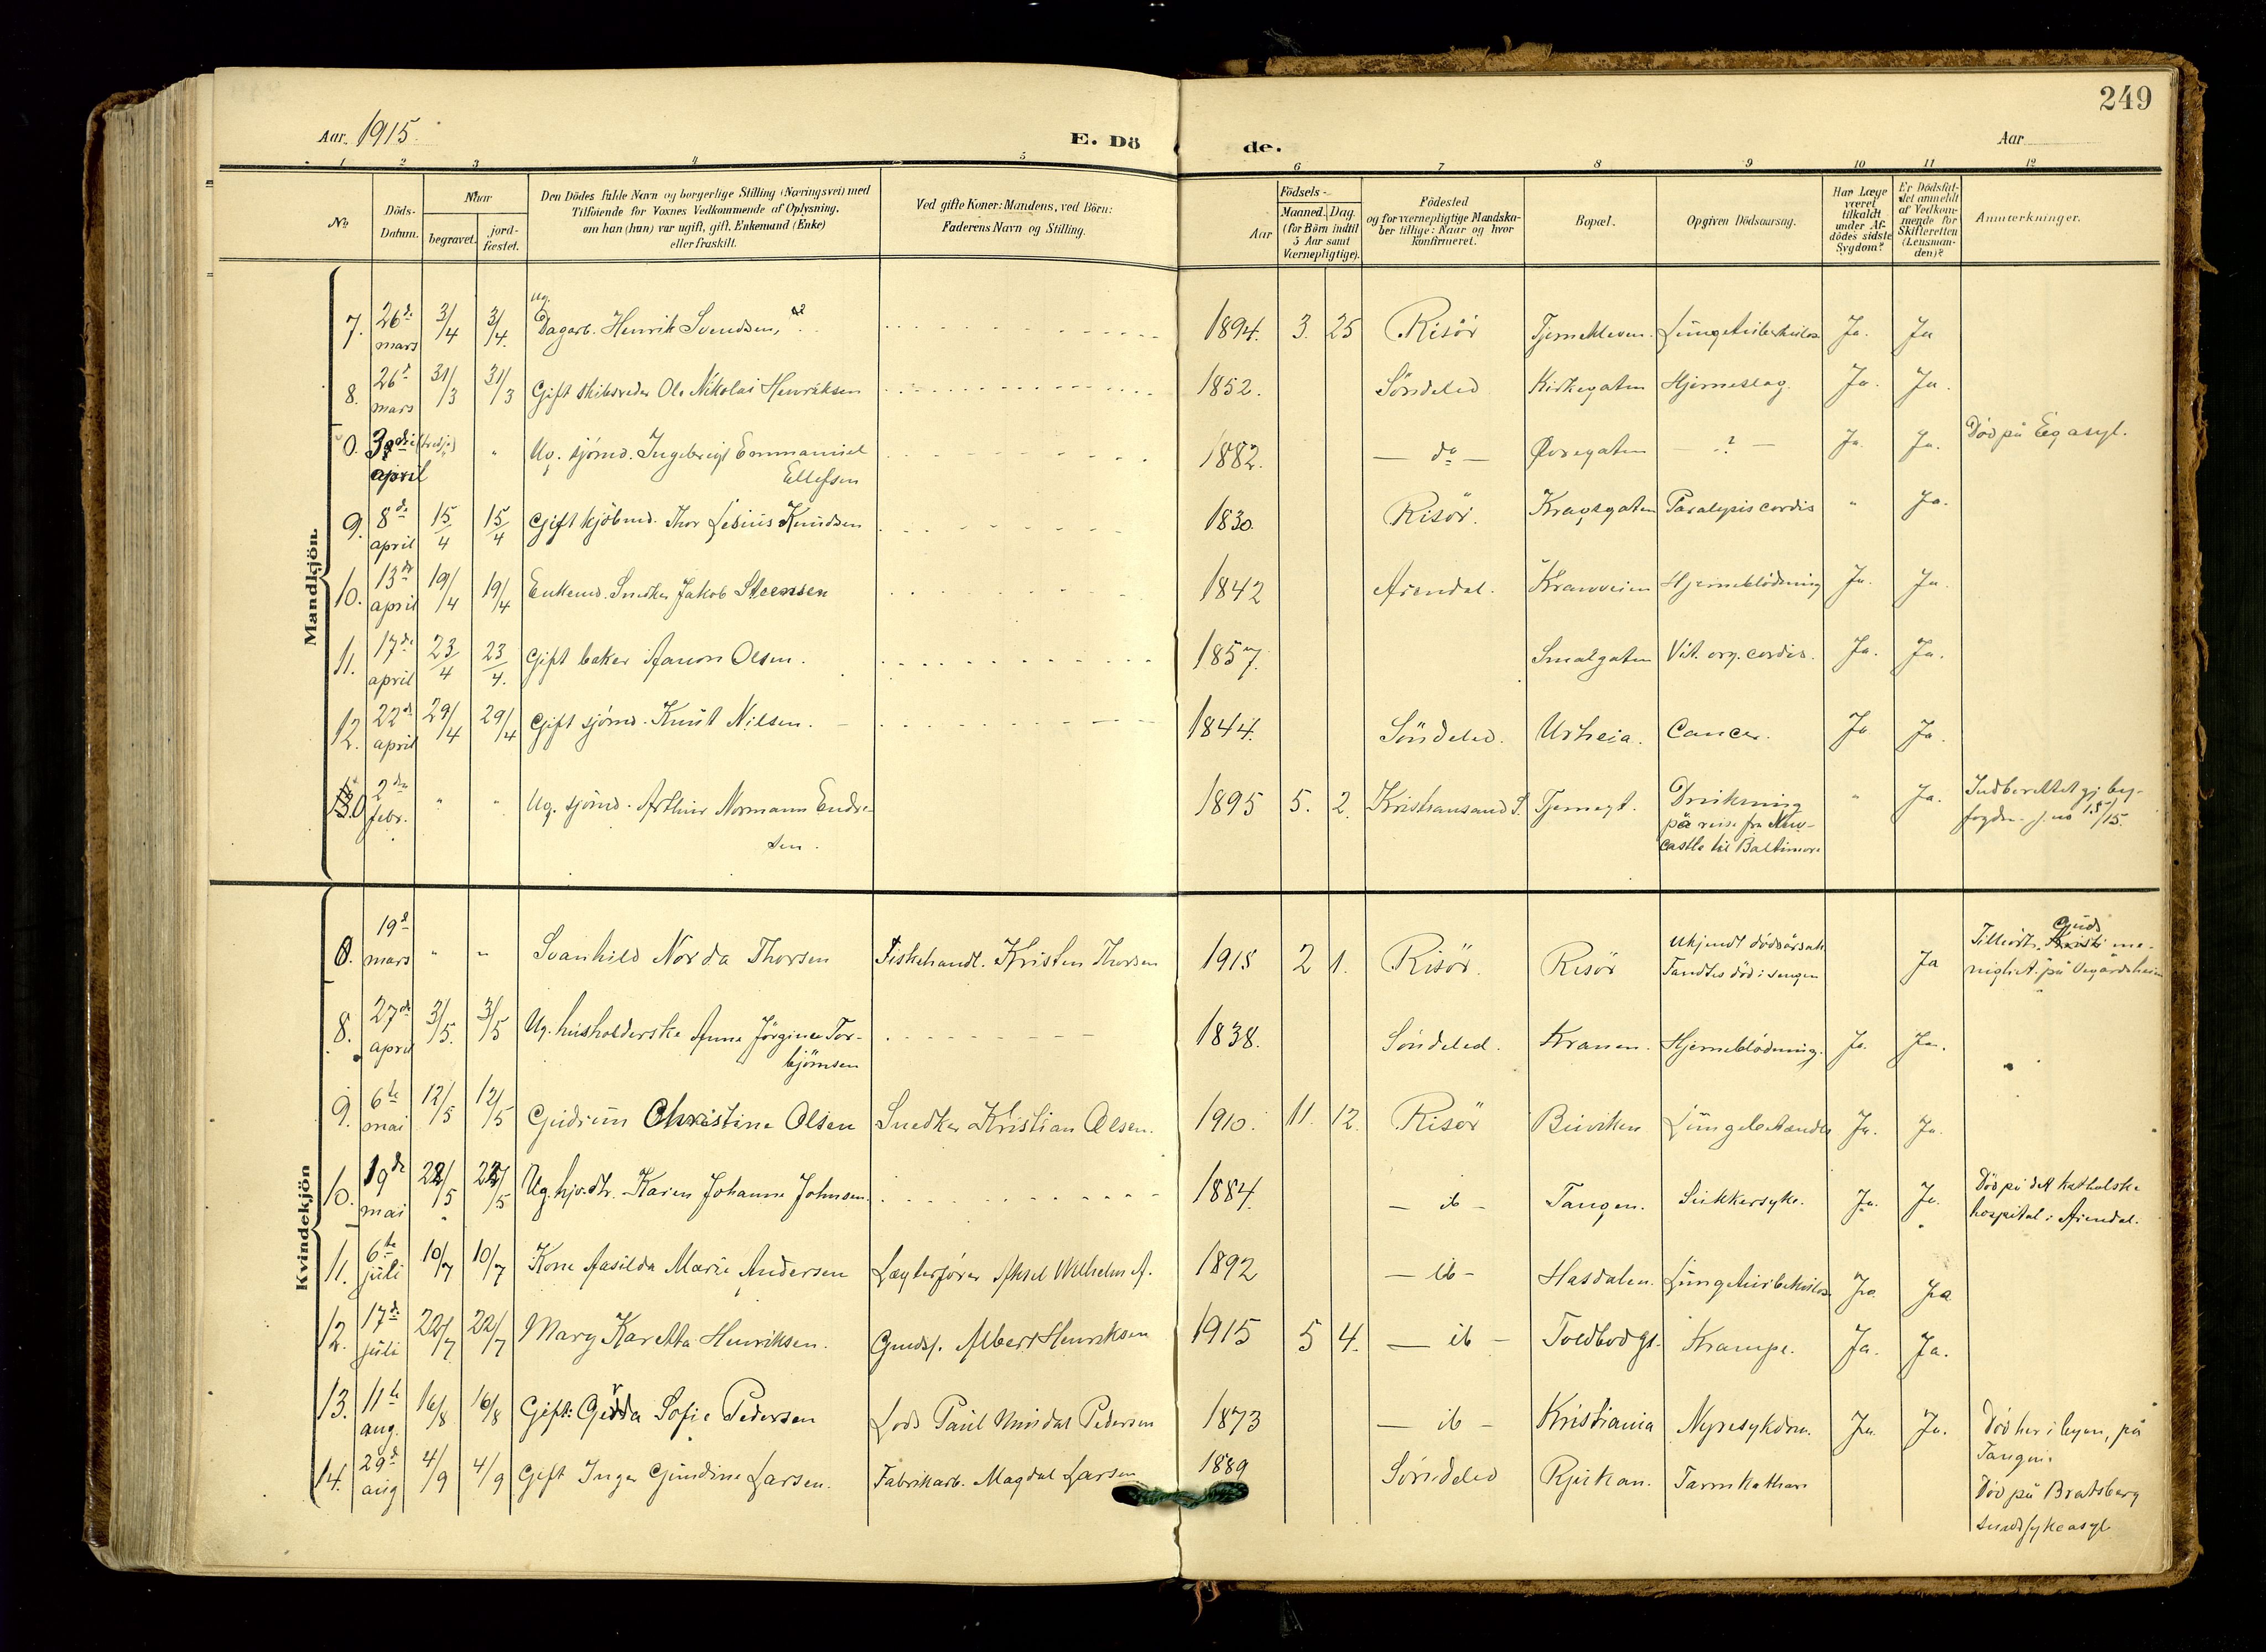 249
Aar. 1915.
E. Dö de.
Aar
1 2 3 4 5 6 7 8 9 10 11 12
No.
Döds-Datum.
Naar
begravet.
jord-fæstet.
Den Dödes fulde Navn og borgerlige Stilling (Næringsvei) med
Tilföiende for Voxnes Vedkommende af Oplysning,
om han (hun) var ugift, gift, Enkemand (Enke)
eller fraskilt.
Ved gifte Koner: Mandens, ved Börn:
Faderens Navn og Stilling.
Aar
Födsels-
Maaned. Dag.
(for Börn indtil
5 Aar samt
Værnepligtige).
Födested
og for værnepligtige Mandska-
ber tillige: Naar og hvor
konfirmeret.
Bopæl.
Opgiven Dödsaarsag.
Har Læge
været
tilkaldt
under Af-
dödes sidste
Sygdom?
Er Dödsfal-
det anmeldt
af Vedkom-
mende for
Skifteretten
(Lensman-
den)?
Anmærkninger.
Mandkjön.
7. 26de mars 3/4 3/4 Ug. Dagarb. Henrik Svendsen, 1894. 3. 25 Risör Tjernkleven. Lungetuberkulos Ja. Ja
8. 26de mars 31/3 31/3 Gift skibsreder Ole Nikolai Henriksen 1852. Söndeled Kirkegaten Hjerneslag. Ja. Ja.
0. 3die (tredje) april " Ug. sjömd. Ingebrigt Emmanuel Ellefsen 1882. — do — Øvregaten — ? — Ja. Ja. Död på Eg asyl.
9. 8de april 15/4 15/4 Gift kjöbmd. Thor Lesius Knudsen 1830 Risör. Kragsgaten Paralysis cordis " Ja.
10. 13de april 19/4 19/4 Enkemd. Snedker Jakob Steensen 1842 Arendal. Kranveien Hjerneblödning Ja. Ja.
11. 17de april 23/4 23/4. Gift baker Aanon Olsen. 1857. Smalgaten Vit. org. cordis. Ja. Ja.
12. 22de april 29/4 29/4 Gift sjömd. Knut Nilsen. 1844. Söndeled. Urheia. Cancer. Ja Ja.
0 2den febr. " " Ug. sjömd. Arthur Normann Endre-
sen. 1895 5. 2. Kristiansand S. Tjerngt. Drukning
på reise fra New-
castle til Baltimore " Ja. Indberettet gj. by-
fogden. j. no 15/15.
Kvindekjön
0. 19de mars " " Svanhild Norda Thorsen Fiskehandl. Kristen Thorsen 1915 2 1. Risör. Risör Ukjendt dödsårsak
Fandtes död i sengen Ja Tilhört. Guds me-
nighet på Vegårdsheien
8. 27de april 3/5. 3/5 Ug. husholderske Anne Jörgine Tor-
björnsen 1838. Söndeled. Kranen. Hjerneblödning. Ja. Ja.
9. 6te mai 12/5 12/5 Gudrun Christine Olsen Snedker Kristian Olsen. 1910. 11. 12. Risör Buviken Lungebetændels Ja. Ja.
10. 19de mai 22/5 22/5 Ug. hjv.dtr. Karen Johanne Johnsen. 1884. — ib — Tangen. Sukkersyke. Ja. Ja. Död på det katholske
hospital i Arendal.
11. 6te juli 10/7 10/7 Kone Aasilda Marie Andersen Lægterförer Aksel Wilhelm A. 1892 — ib — Hasdalen. Lungetuberkulos Ja Ja
12. 17de juli 22/7 22/7 Mary Karetta Henriksen. Grudsf. Albert Henriksen 1915 5 4. — ib — Toldbodgt. Krampe. Ja. Ja.
13. 11te aug. 16/8 16/8 Gift: Gerda Sofie Pedersen Lods Paul Pedersen 1873 — ib — Kristiania Nyresykdom. Ja. Ja. Död her i byen, på
Tangen.
14. 29de aug 4/9 4/9 Gift Inger Gundine Larsen. Fabrikarb. Magdal Larsen 1889 Söndeled Rjukan. Tarmkathar Död på Bratsberg
sindssykeasyl